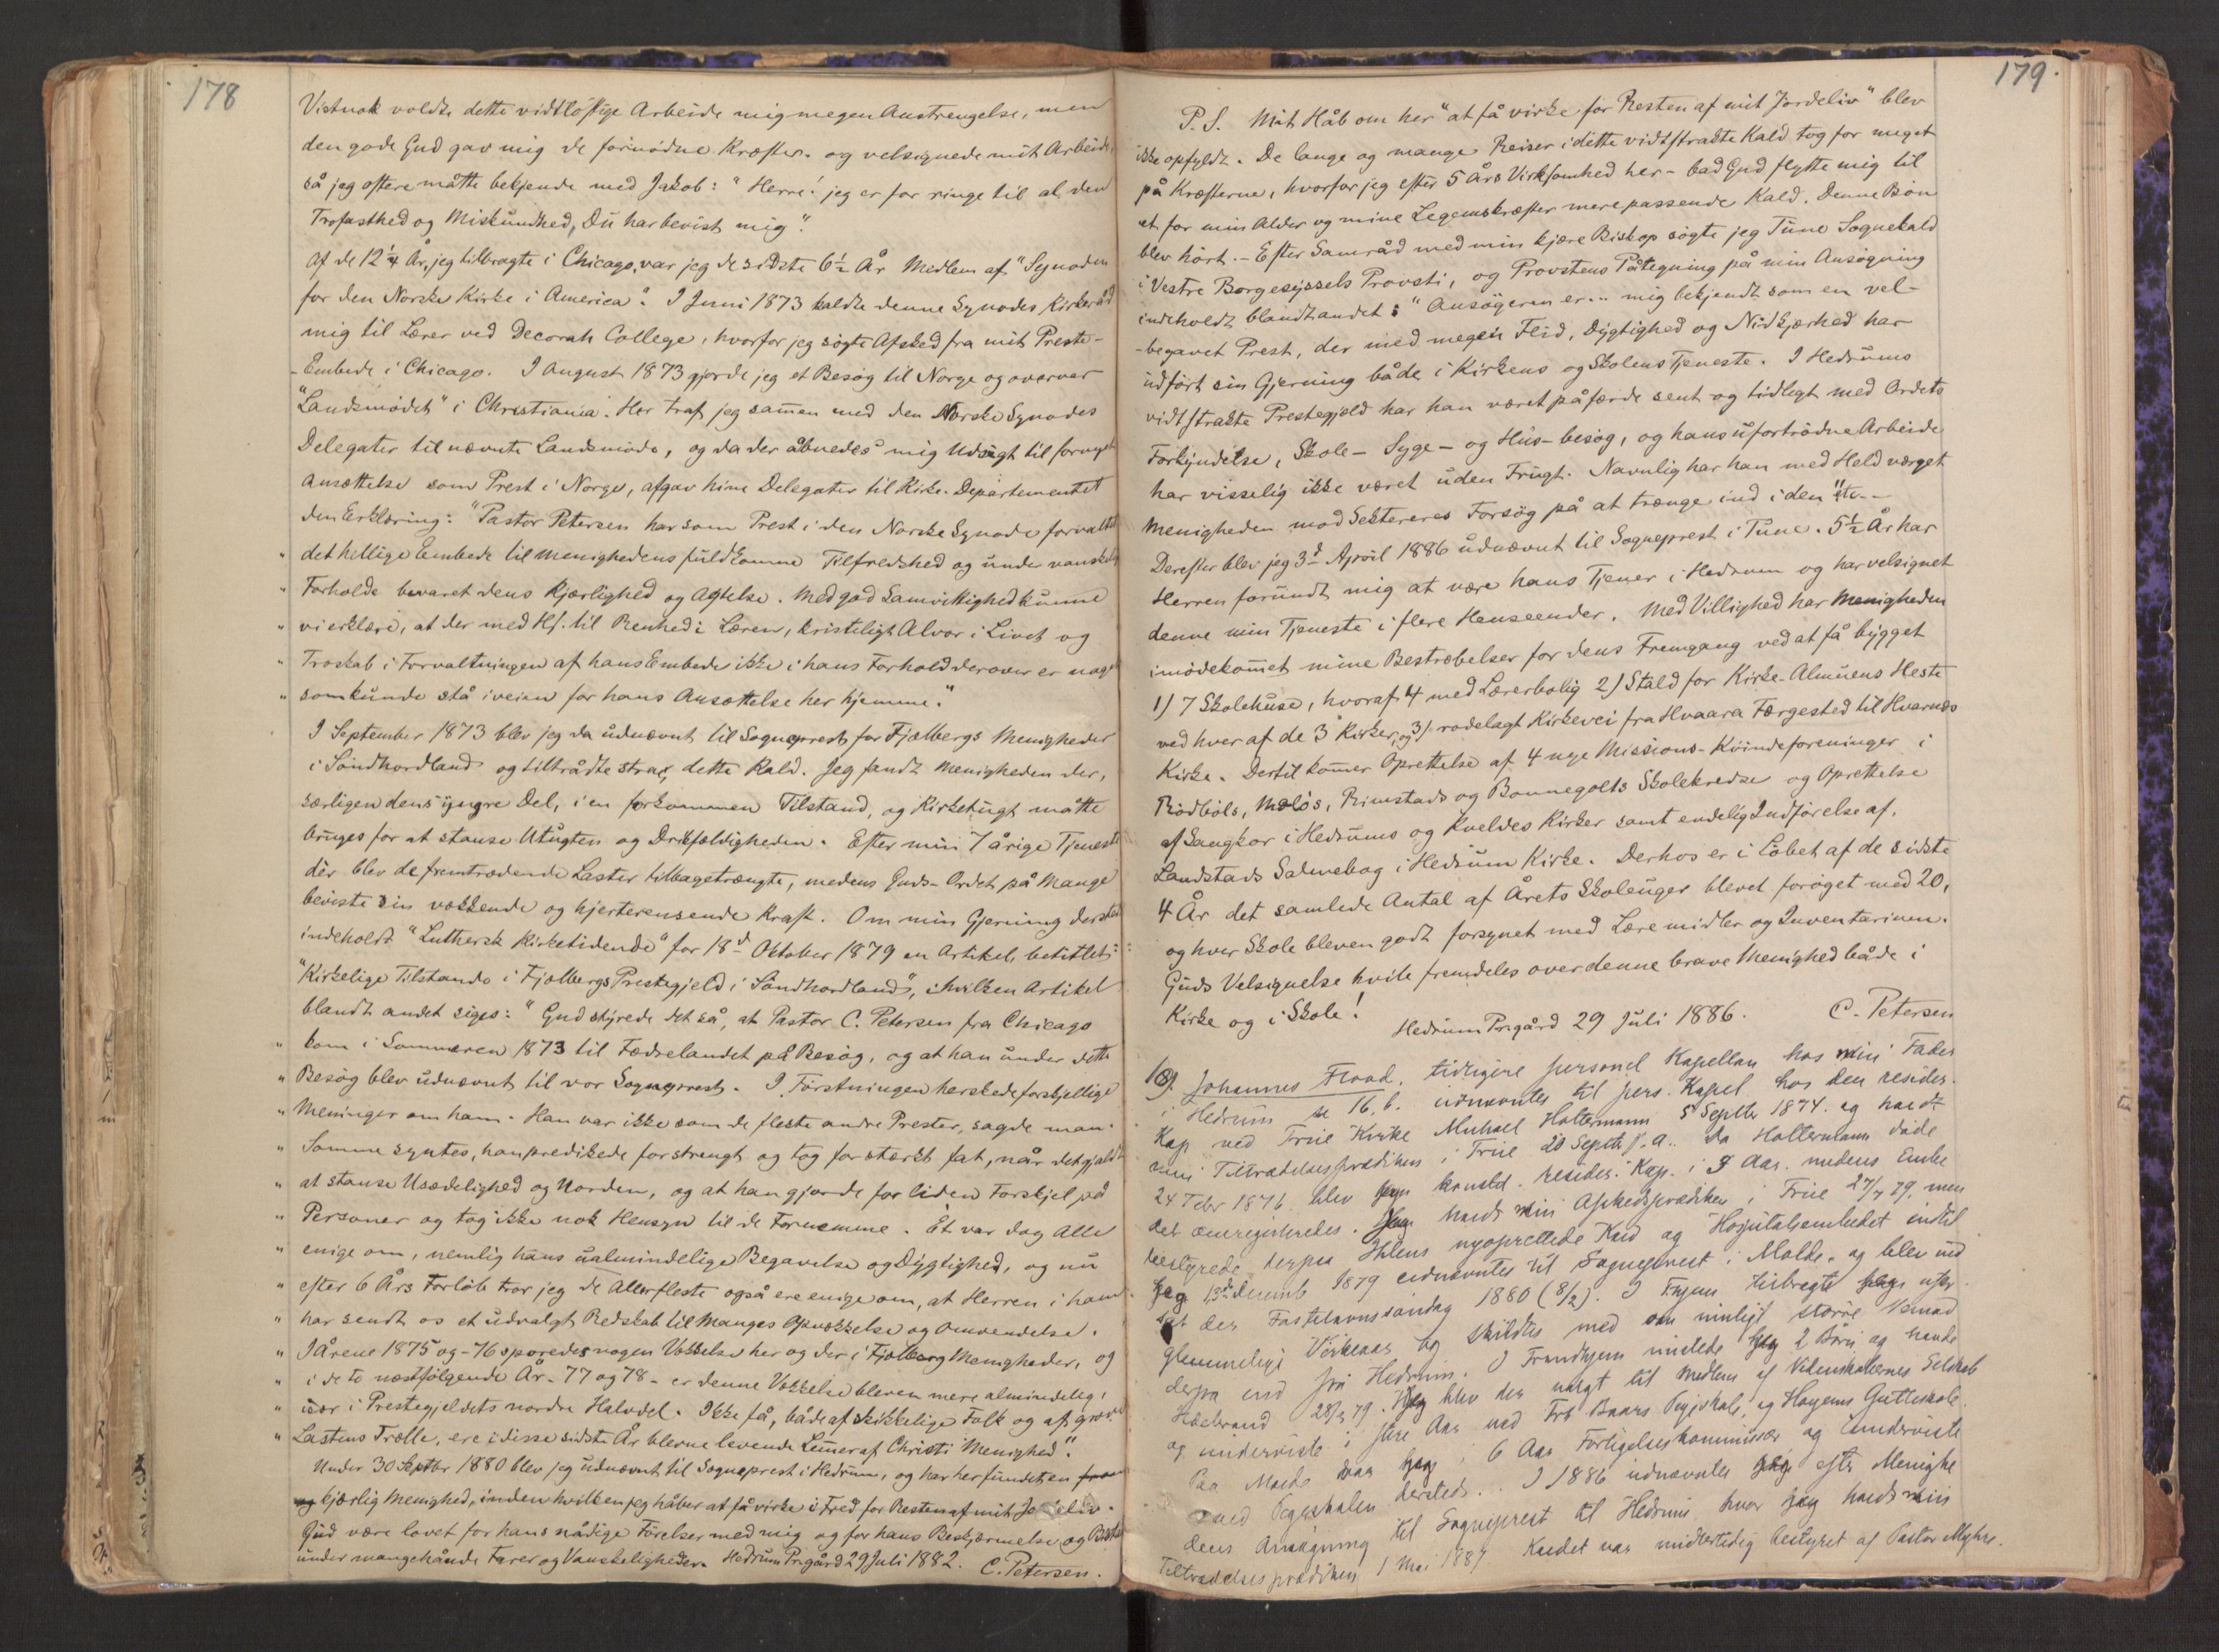 178
Vistnok voldte dette vidtløftige Arbeide mig megen Anstrengelse, men
den gode Gud gav mig de fornødne Kræfter og velsignede mit Arbeide,
så jeg oftere måtte bekjende med Jakob: "Herre! jeg er for ringe til al den
Trofasthed og Miskundhed, Du har bevist mig".
Af de 12¼ År, jeg tilbragte i Chicago, var jeg de sidste 6½ År Medlem af "Synoden
for den Norske Kirke i America". I Juni 1873 kaldte denne Synodes Kirkeråd
mig til Lærer ved Decorah College, hvorfor jeg søgte Afsked fra mit Preste-
-Embede i Chicago. I August 1873 gjorde jeg et Besøg til Norge og overvar
"Landsmødet" i Christiania. Her traf jeg sammen med den Norske Synodes
Delegater til nævnte Landsmøde, og da der åbnedes mig Udsigt til fornyet
Ansættelse som Prest i Norge, afgav hine Delegater til Kirke-Departementet
den Erklæring: "Pastor Petersen har som Prest i den Norske Synode forvaltet
" det hellige Embede til Menighedens fuldkomne Tilfredshed og under vanskelige
" Forholde bevaret dens Kjærlighed og Agtelse. Med god Samvittighed kunne
" vi erklære, at der med Hs. til Renhed i Læren, kristeligt Alvor i Livet og
" Troskab i Forvaltningen af hans Embede ikke i hans Forhold derover er noget
" som kunde stå iveien for hans Ansættelse her hjemme."
I September 1873 blev jeg da udnævnt til Sogneprest for Fjælbergs Menigheder
i Søndhordland og tiltrådte strax dette Kald. Jeg fandt Menigheden der,
særligen dens yngre Del, i en forkommen Tilstand, og Kirketugt måtte
bruges for at stanse Utugten og Drikfældigheden. Efter min 7 årige Tjeneste
dèr blev de fremtrædende Laster tilbagetrængte, medens Guds-Ordet på Mange
beviste sin vækkende og hjerterensende Kraft. Om min Gjerning dersted
indeholdt "Luthersk Kirketidende" for 18d Oktober 1879 en Artikel, betitlet:
"Kirkelige Tilstande i Fjælbergs Prestegjeld i Søndhordland", i hvilken Artikel
blandt andet siges: "Gud styrede det så, at Pastor C. Petersen fra Chicago
" kom i Sommeren 1873 til Fædrelandet på Besøg, og at han under dette
" Besøg blev udnævnt til vor Sogneprest. I Førstningen herskede forskjellige
" Meninger om ham. Han var ikke som de fleste andre Prester, sagde man.
" Somme syntes, han predikede for strengt og tog for stærkt fat, når det gjaldt
" at stanse Usædelighed og Uorden, og at han gjorde for liden Forskjel på
" Personer og tog ikke nok Hensyn til de Fornemme. Èt var dog Alle
" enige om, nemlig hans ualmindelige Begavelse og Dygtighed, og nu
" efter 6 Års Forløb tror jeg de Allerfleste også ere enige om, at Herren i ham
" har sendt os et udvalgt Redskab til Manges Opvækkelse og Omvendelse.
" I Årene 1875 og -76 sporedes nogen Vækkelse her og der i Fjælberg Menigheder, og
" i de to næstfølgende År -77 og 78- er denne Vækkelse bleven mere almindelig,
" især i Prestegjeldets nordre Halvdel. Ikke få, både af skikkelige Folk og af grove
" Lastens Trælle, ere i disse sidste År blevne levende Lemmer af Christi Menighed".
Under 30 Septbr 1880 blev jeg udnævnt til Sogneprest i Hedrum, og har her fundet en
kjærlig Menighed, inden hvilken jeg håber at få virke i Fred for Resten af mit Jordeliv.
Gud være lovet for hans nådige Førelser med mig og for hans Beskjærmelse og Bistand
under mangehånde Farer og Vanskeligheder. Hedrum Prgård 29 Juli 1882. C. Petersen.
179.
P.S. Mit Håb om her "at få virke for Resten af mit Jordeliv" blev
ikke opfyldt. De lange og mange Reiser i dette vidtstrakte Kald tog for meget
på Kræfterne, hvorfor jeg efter 5 Års Virksomhed her - bad Gud flytte mig til
et for min Alder og mine Legemskræfter mere passende Kald. Denne Bøn
blev hørt. - Efter Samråd med min kjære Biskop søgte jeg Tune Sognekald
i Vestre Borgesyssels Provsti, og Provstens Påtegning på min Ansøgning
indeholdt blandt andet: "Ansøgeren er... mig bekjendt som en vel-
-begavet Prest, der med megen Flid, Dygtighed og Nidkjærhed har
udført sin Gjerning både i Kirkens og Skolens Tjeneste. I Hedrums
vidtstrakte Prestegjeld har han været på færde sent og tidligt med Ordets
Forkyndelse, Skole- Syge- og Hus-besøg, og hans ufortrødne Arbeide
har visselig ikke været uden Frugt. Navnlig har han med Held værget
Menigheden mod Sektereres Forsøg på at trænge ind i den" etc--
Derefter blev jeg 3d April 1886 udnævnt til Sogneprest i Tune. 5½ År har
Herren forundt mig at være hans Tjener i Hedrum og har velsignet
denne min Tjeneste i flere Henseender. Med Villighed har Menigheden
imødekommet mine Bestræbelser for dens Fremgang ved at få bygget
1) 7 Skolehuse, hvoraf 4 med Lærerbolig 2) Stald for Kirke-Almuens Heste
ved hver af de 3 Kirker, og 3) rodelagt Kirkevei fra Hvaara Færgested til Hvarnes
Kirke. Dertil kommer Oprettelse af 4 nye Missions-Kvindeforeninger i
Rødbøls, Moløs, Rimstads og Bonnegolts Skolekredse og Oprettelse
af Sangkor i Hedrums og Kveldes Kirker samt endelig Indførelse af
Landstads Salmebog i Hedrum Kirke. Derhos er i Løbet af de sidste
4 År det samlede Antal af Årets Skoleuger blevet forøget med 20,
og hver Skole bleven godt forsynet med Læremidler og Inventarium.
Guds Velsignelse hvile fremdeles over denne brave Menighed både i
Kirke og i Skole!
Hedrum Prgård 29 Juli 1886. C. Petersen
Johannes Flood, tidligere personel Kapellan hos min Fader
i Hedrum se 16, b. udnævntes til pers. Kapel. hos den resider.
Kap ved Frue Kirke Michael Holtermann 5 Septbr 1874. og holdt
min Tiltrædelsesprædiken i Frue 20 Septb s. a. Da Holtermann døde
24 Febr 1876 blev jeg konstd. resider. Kap. i 3 Aar. medens Embe
det omregistreredes. Jeg holdt min Afskedsprædiken i Frue 27/7 79, men
bestyrede derpaa Ihlens nyoprettede Kald og Hospitalsembedet indtil
jeg 13de Decemb 1879 udnævntes til Sogneprest i Molde, og blev ind
sat der Fastelavnssøndag 1880 (8/2). I Trhjem tilbragte jeg
og skildtes med
derpa end fra Hedrum. I Trondhjem mistede jeg 2 Børn og havde
Ildebrand 28/3 79. Jeg blev der valgt til Medlem af Videnskabernes Selskab
og underviste i flere Aar ved Frk Baars Pigeskole, og Hagens Gutteskole.
Paa Molde var jeg i 6 Aar Forligelseskommissær og underviste
ved Pigeskolen dersteds. I 1886 udnævntes jeg efter Menighe
dens Ansøgning til Sogneprest til Hedrum hvor jeg holdt min
Tiltrædelsesprædiken 1 Mai 1887 Kaldet var midlertidig bestyret af Pastor Myhre.